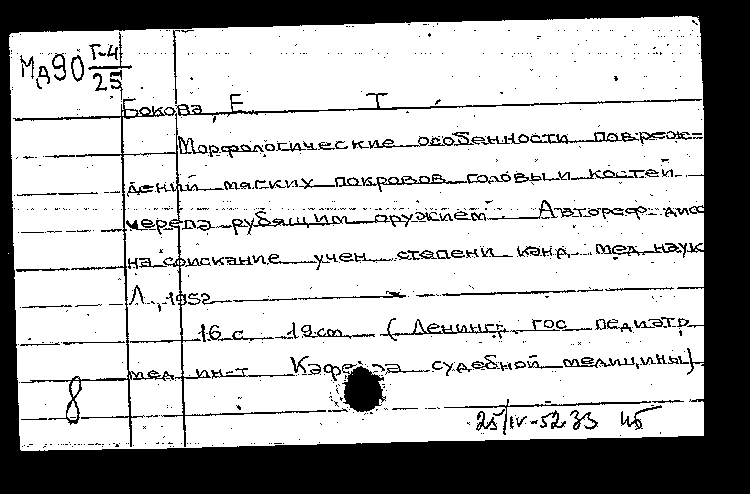 Мд90 Г-4/25
Бокова, Е. Т.
Морфологические особенности повреж=
дений мягких покровов головы и костей
черепа рубящим оружием. Автореф. дис
на соискание учен. степени канд. мед. наук
Л., 1952
16 с. 19 cm. (Ленингр. гос. педиатр.
мед. ин-т. Кафедра судебной медицины)
8
25/IV-52 33